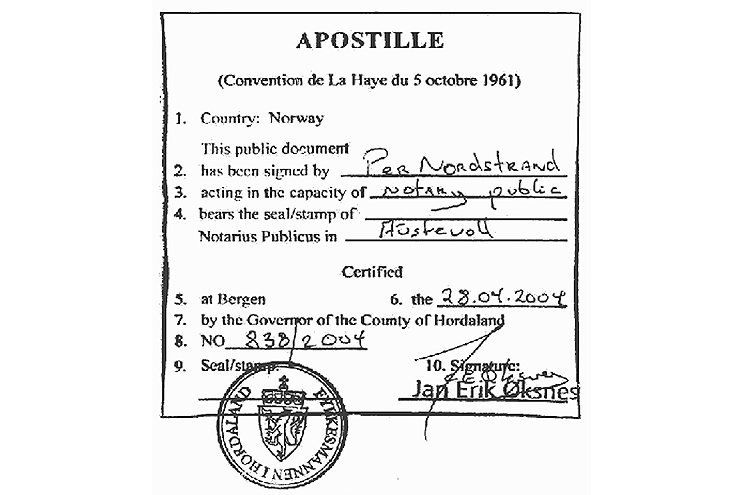 APOSTILLE
(Convention de La Haye du 5 octobre 1961)
1. Country: Norway
This public document
2. has been signed by Per Nordstrand
3. acting in the capacity of notary public
4. bears the seal/stamp of
Notarius Publicus in Austevoll
Certified
5. at Bergen 6. the 28.04.2004
7. by the Governor of the County of Hordaland
8. NO 838/2004
9. Seal/stamp: 10. Signature:
Jan Erik Øksnes
FYLKESMANNEN I HORDALAND